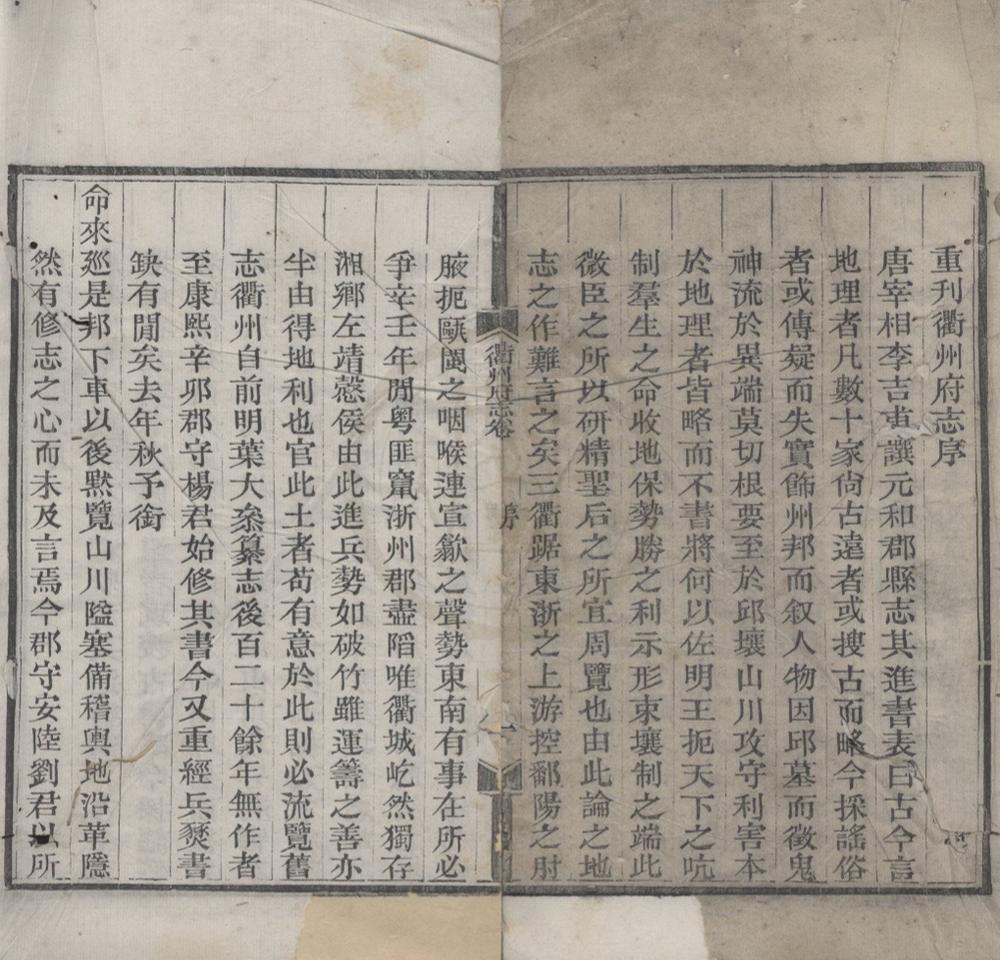 重刊衢州府志序
唐宰相李吉甫譔元和郡縣志其進書表曰古今言
地理者凡數十家尙古遠者或搜古而略今採謠俗
者或傳疑而失實飾州邦而叙人物因邱墓而徵鬼
神流於異端莫切根要至於邱壤山川攻守利害本
於地理者皆略而不書將何以佐明王扼天下之吭
制羣生之命收地保勢勝之利示形束壤制之端此
微臣之所以研精聖后之所宜周覽也由此論之地
志之作難言之矣三衢踞東浙之上游控鄱陽之肘
衢州府志卷
序
一
腋扼甌閩之咽喉連宣歙之聲勢東南有事在所必
爭辛壬年閒粤匪竄浙州郡盡陷唯衢城屹然獨存
湘鄉左靖愨侯由此進兵勢如破竹雖運籌之善亦
半由得地利也官此土者苟有意於此則必流覽舊
志衢州自前明葉大叅纂志後百二十餘年無作者
至康熙辛卯郡守楊君始修其書今又重經兵燹書
缺有閒矣去年秋予銜
命來廵是邦下車以後默覽山川隘塞備稽輿地沿革隱
然有修志之心而未及言焉今郡守安陸劉君以所